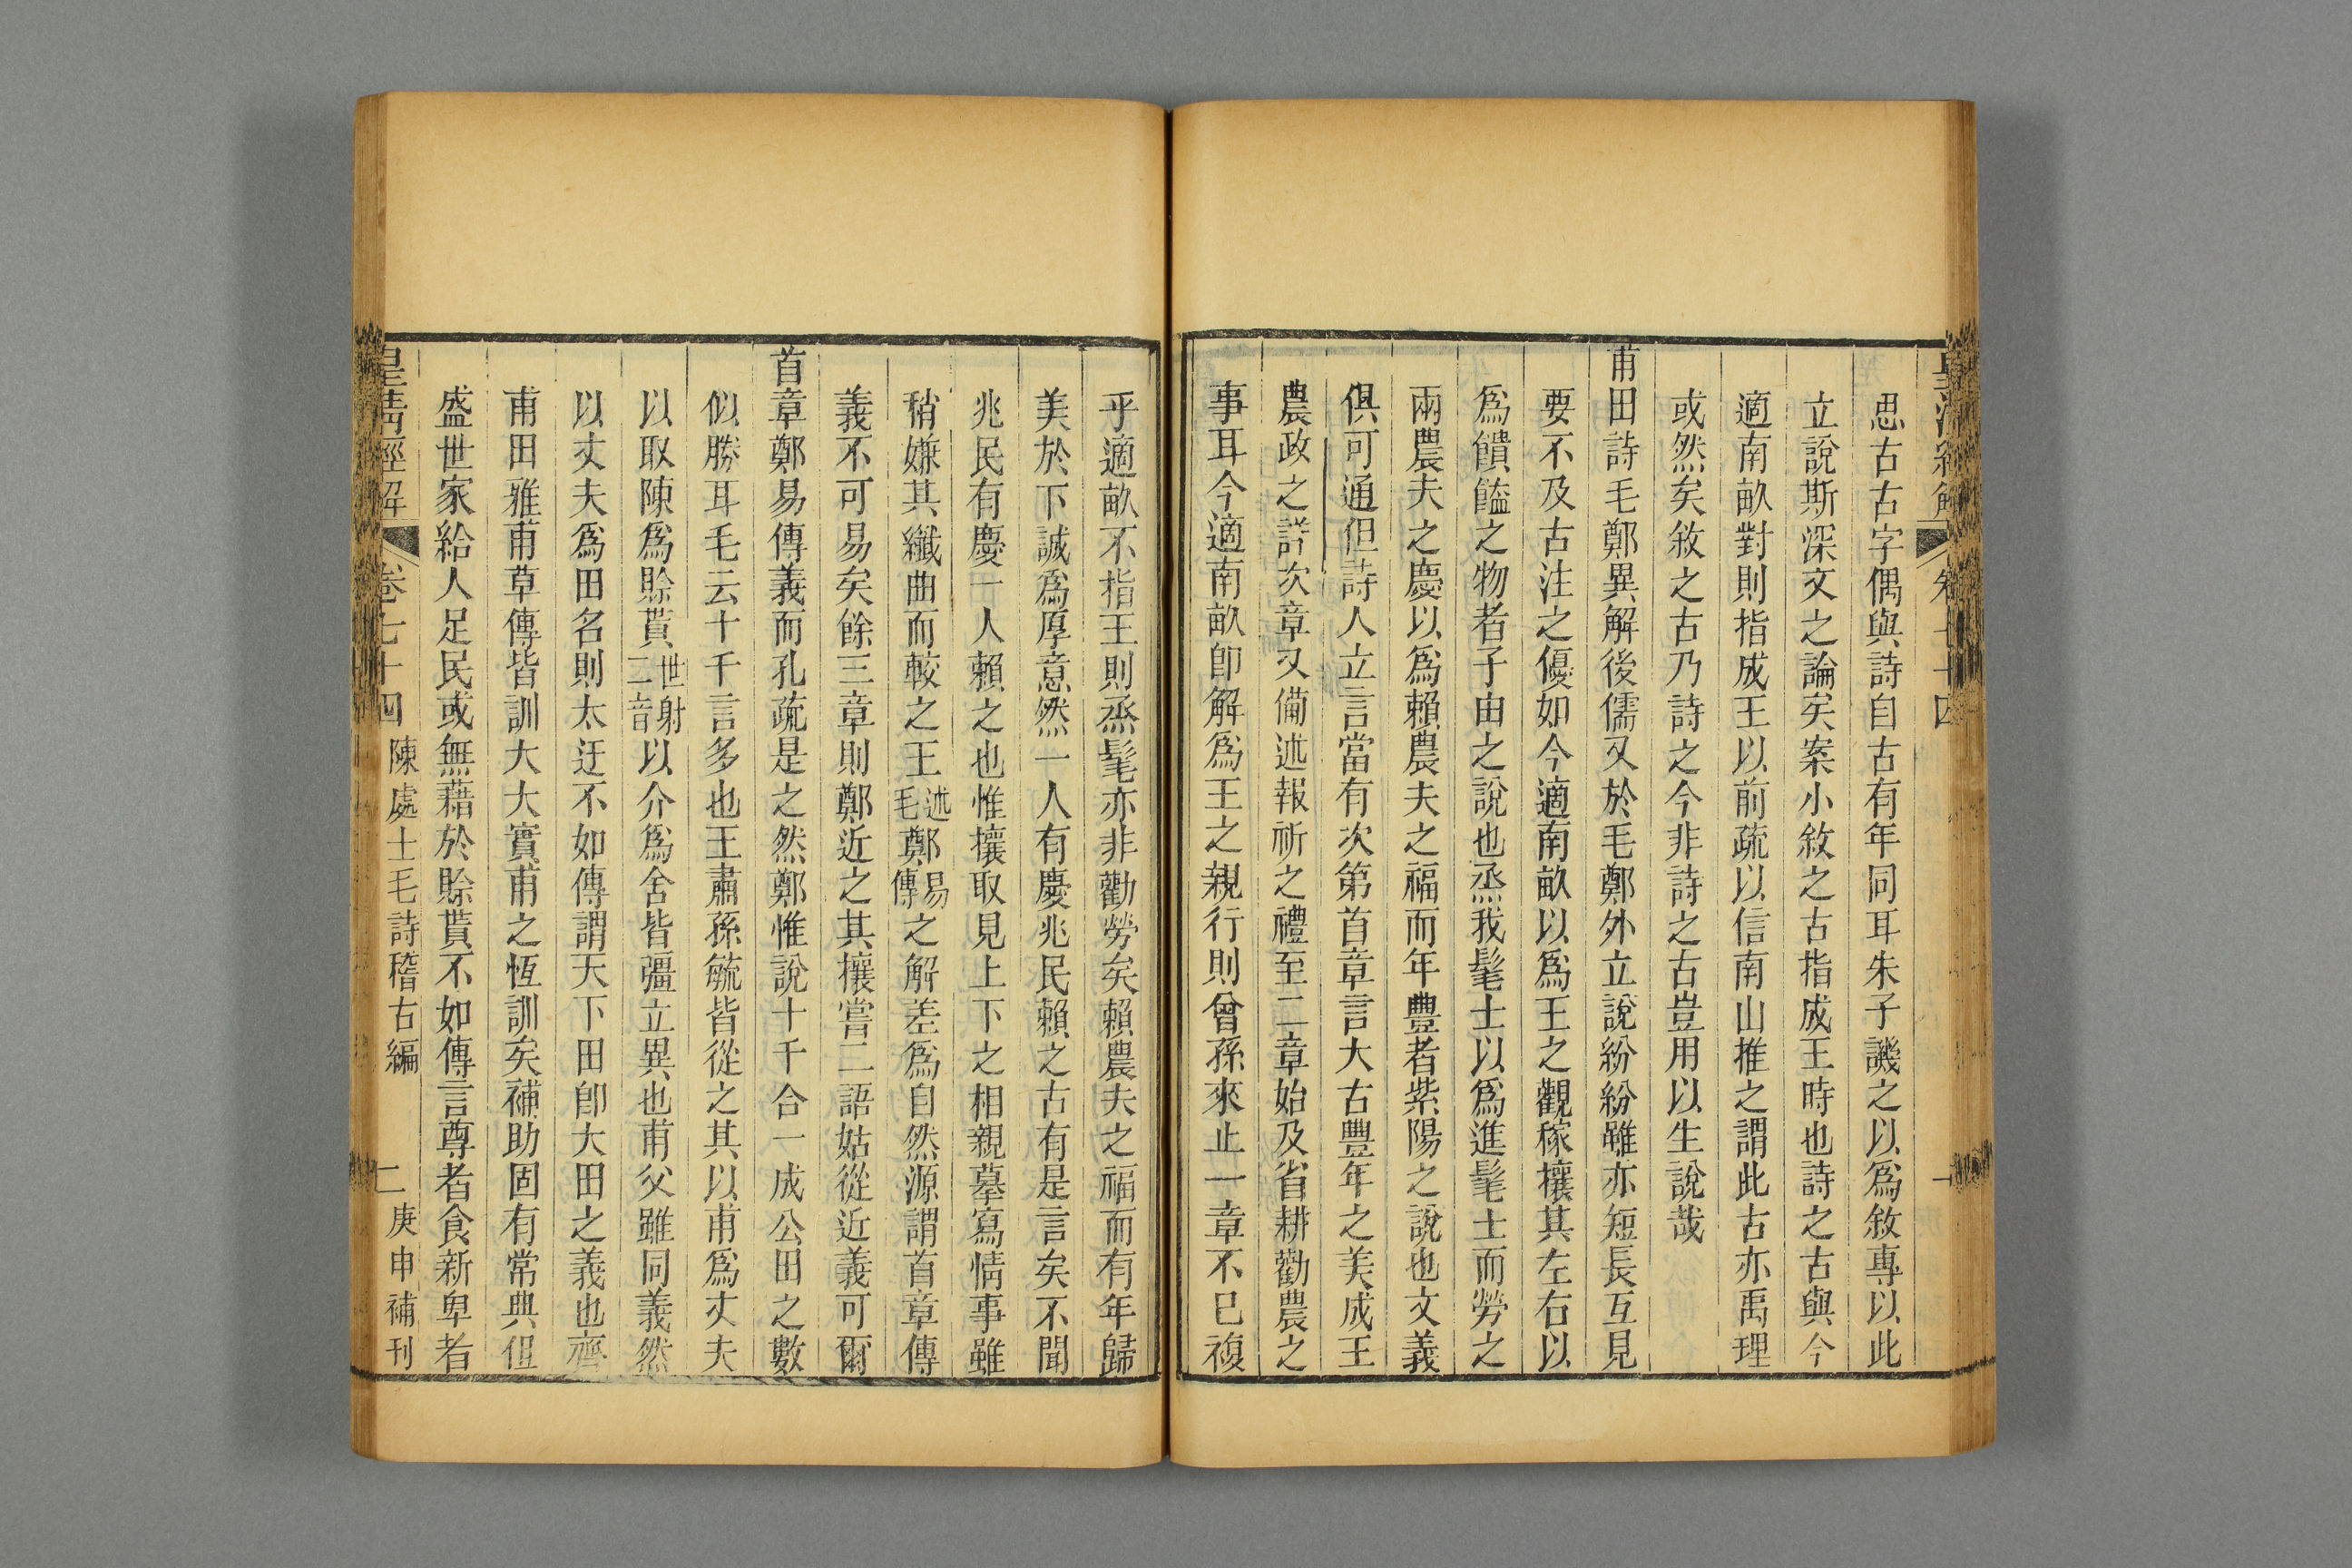 皇清經解 卷七十四 一
思古古字偶與詩自古有年同耳朱子譏之以爲敘專以此
立說斯深文之論矣案小敘之古指成王時也詩之古與今
適南畝對則指成王以前疏以信南山推之謂此古亦禹理
或然矣敘之古乃詩之今非詩之古豈用以生說哉
甫田詩毛鄭異解後儒又於毛鄭外立說紛紛雖亦短長互見
要不及古注之優如今適南畝以爲王之觀稼攘其左右以
爲饋饁之物者子由之說也烝我髦士以爲進髦士而勞之
兩農夫之慶以爲賴農夫之福而年豐者紫陽之說也文義
俱可通但詩人立言當有次第首章言大古豐年之美成王
農政之詳次章又備述報祈之禮至二章始及省耕勸農之
事耳今適南畝卽解爲王之親行則曾孫來止一章不已複
乎適畝不指王則烝髦亦非勸勞矣賴農夫之福而有年歸
美於下誠爲厚意然一人有慶兆民賴之古有是言矣不聞
兆民有慶一人賴之也惟攘取見上下之相親摹寫情事雖
稍嫌其纖曲而較之王述毛鄭易傳之解差爲自然源謂首章傳
義不可易矣餘三章則鄭近之其攘嘗二語姑從近義可爾
首章鄭易傳義而孔疏是之然鄭惟說十千合一成公田之數
似勝耳毛云十千言多也王肅孫毓皆從之其以甫爲丈夫
以取陳爲賒貰世射二音以介爲舍皆彊立異也甫父雖同義然
以丈夫爲田名則太迂不如傳謂天下田卽大田之義也齊
甫田雅甫草傳皆訓大大實甫之恆訓矣補助固有常典但
盛世家給人足民或無藉於賒貰不如傳言尊者食新卑者
皇清經解 卷七十四 陳處士毛詩稽古編 二 庚申補刊